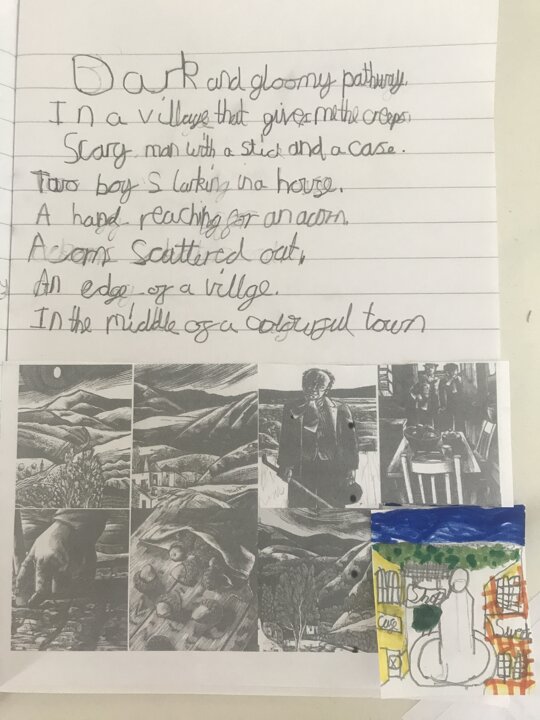 Dark and gloomy pathway.
In a village that gives me the creeps.
Scary man with a stick and a case.
Two boy s larking in a house.
A hand reaching for an acorn.
Acorns Scattered out,
An edge of a villge.
In the middle of a colourful town
Shop
Cafe
Sweet